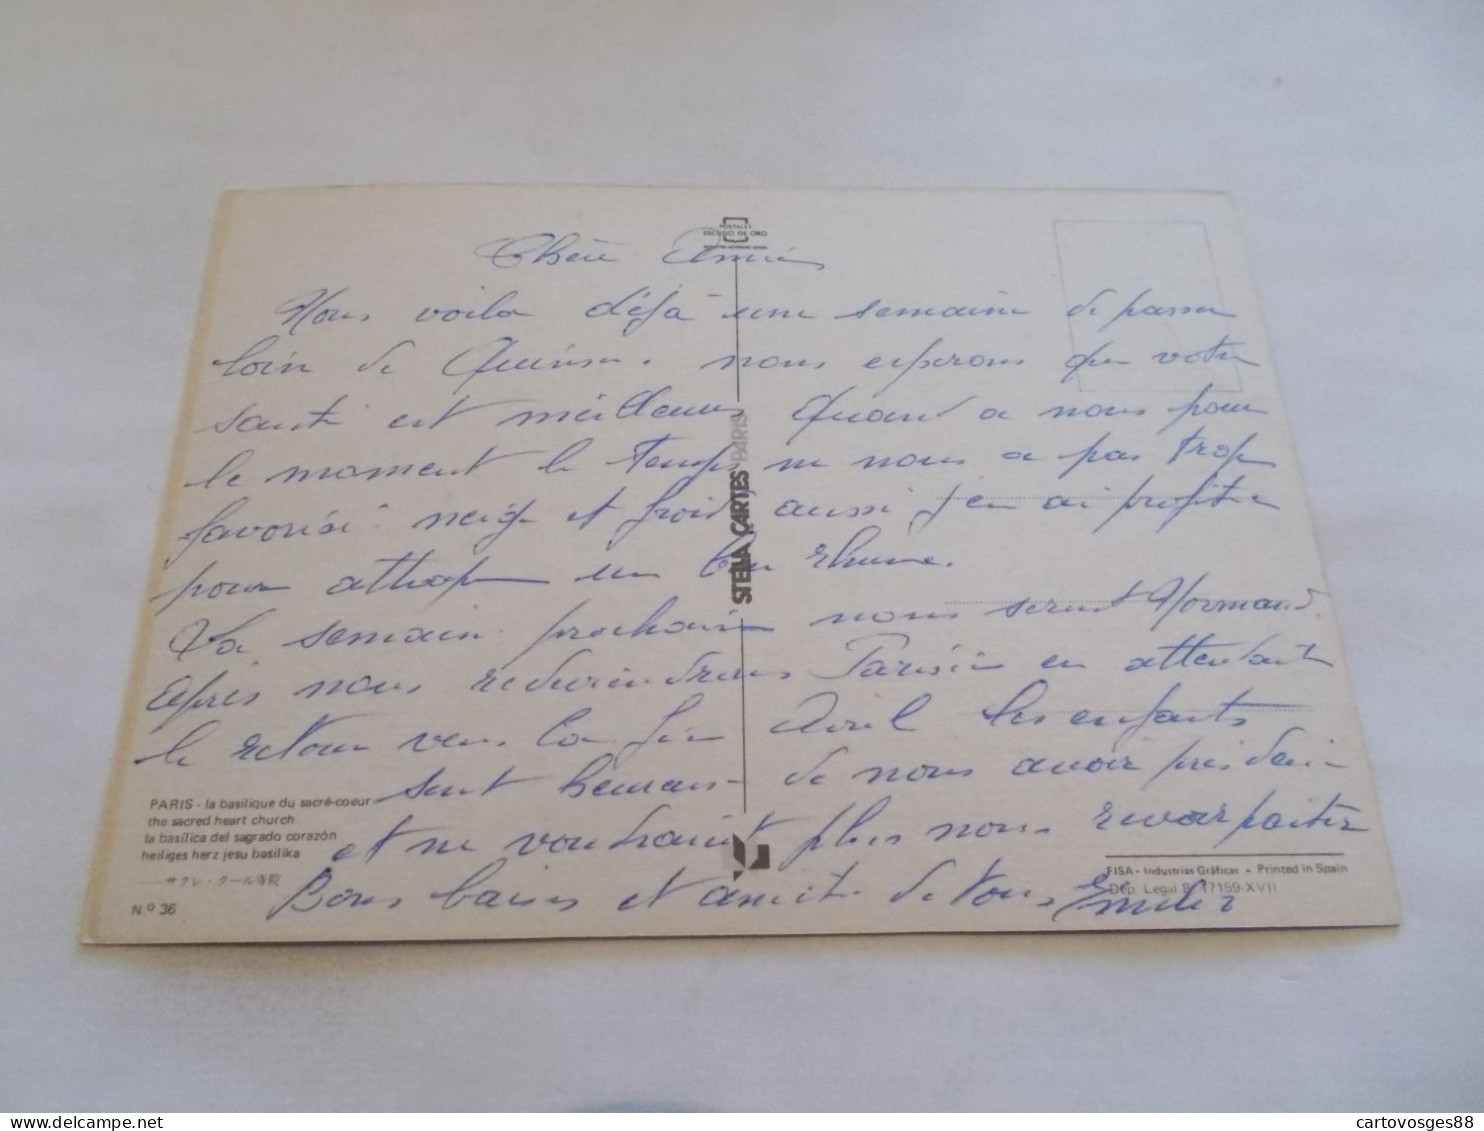 POSTALES
ESCUDO DE ORO
Chère Amie
Nous voila déjà une semaine de passer
loin de nous esperons que votre
santé est meilleure Quand a nous pour
le moment le Temps ne nous a pas trop
favorisé : neige et froid, aussi j'en ai profiter
pour attraper un bon rhume.
La semaine prochaine nous seront Normand
après nous redeviendrons Parisien en attendant
le retour vers la fin Avril les enfants
sont heureux de nous avoir près d'eux
et ne voudraient plus nous revoir partir
Bons baisers et amitié de tous
STELLA CARTES PARIS
PARIS - la basilique du sacré-coeur
the sacred heart church
la basílica del sagrado corazón
heiliges herz jesu basilika
サクレ・クール寺院
N.º 36
FISA - Industrias Gráficas - Printed in Spain
Dep. Legal B. 17159-XVII
cartovosges88